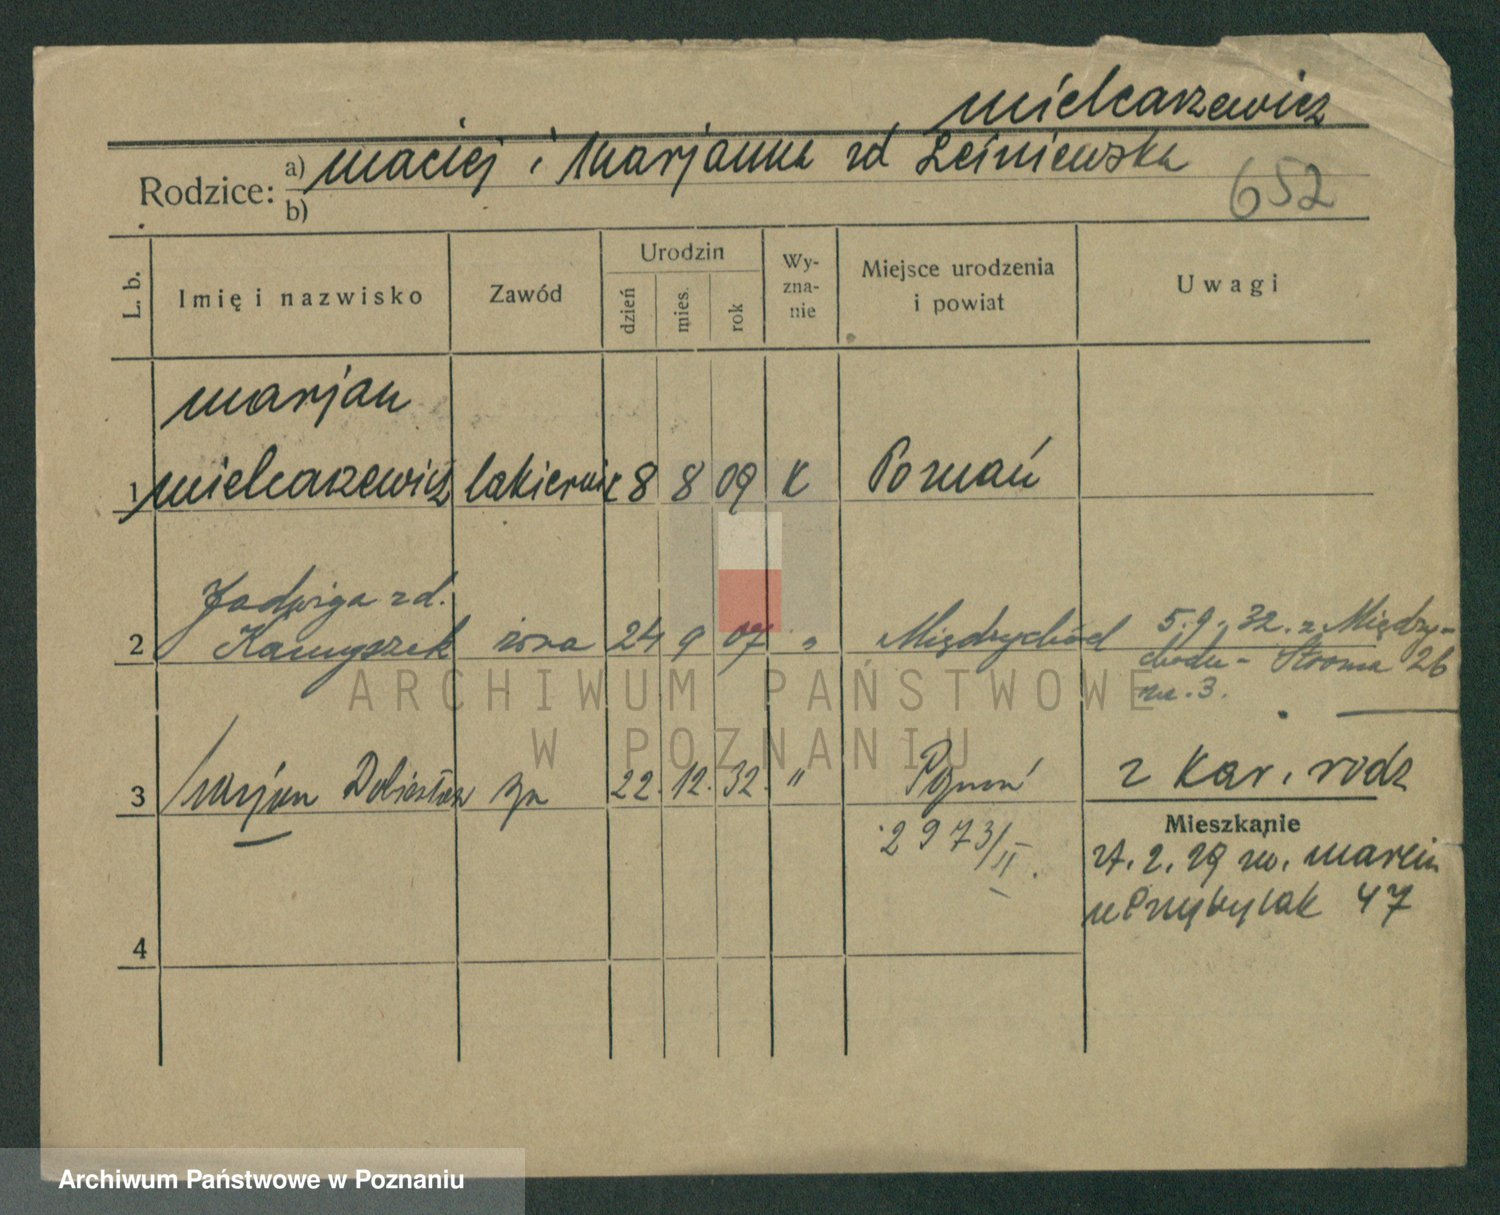 Mielcarzewicz
Rodzice: a) Maciej i Marjanna zd Leśniewska
b)
652
L. b.
Imię i nazwisko
Zawód
Urodzin
dzień
mies.
rok
Wy-
zna-
nie
Miejsce urodzenia
i powiat
Uwagi
Marjan
1 Mielcarzewicz lakiernik 8 8 09 K Poznań
Jadwiga zd.
2 Kamyszek żona 24 9 07 " Międzychód
5.9.32. z Między-
chodu - Stroma 26
m. 3.
3 Marjan Dobiesław 22. 12. 32. " Poznań
2973/II.
z Kar. rodz
Mieszkanie
Marcin
47
4
ARCHIWUM PAŃSTWOWE
W POZNANIU
Archiwum Państwowe w Poznaniu